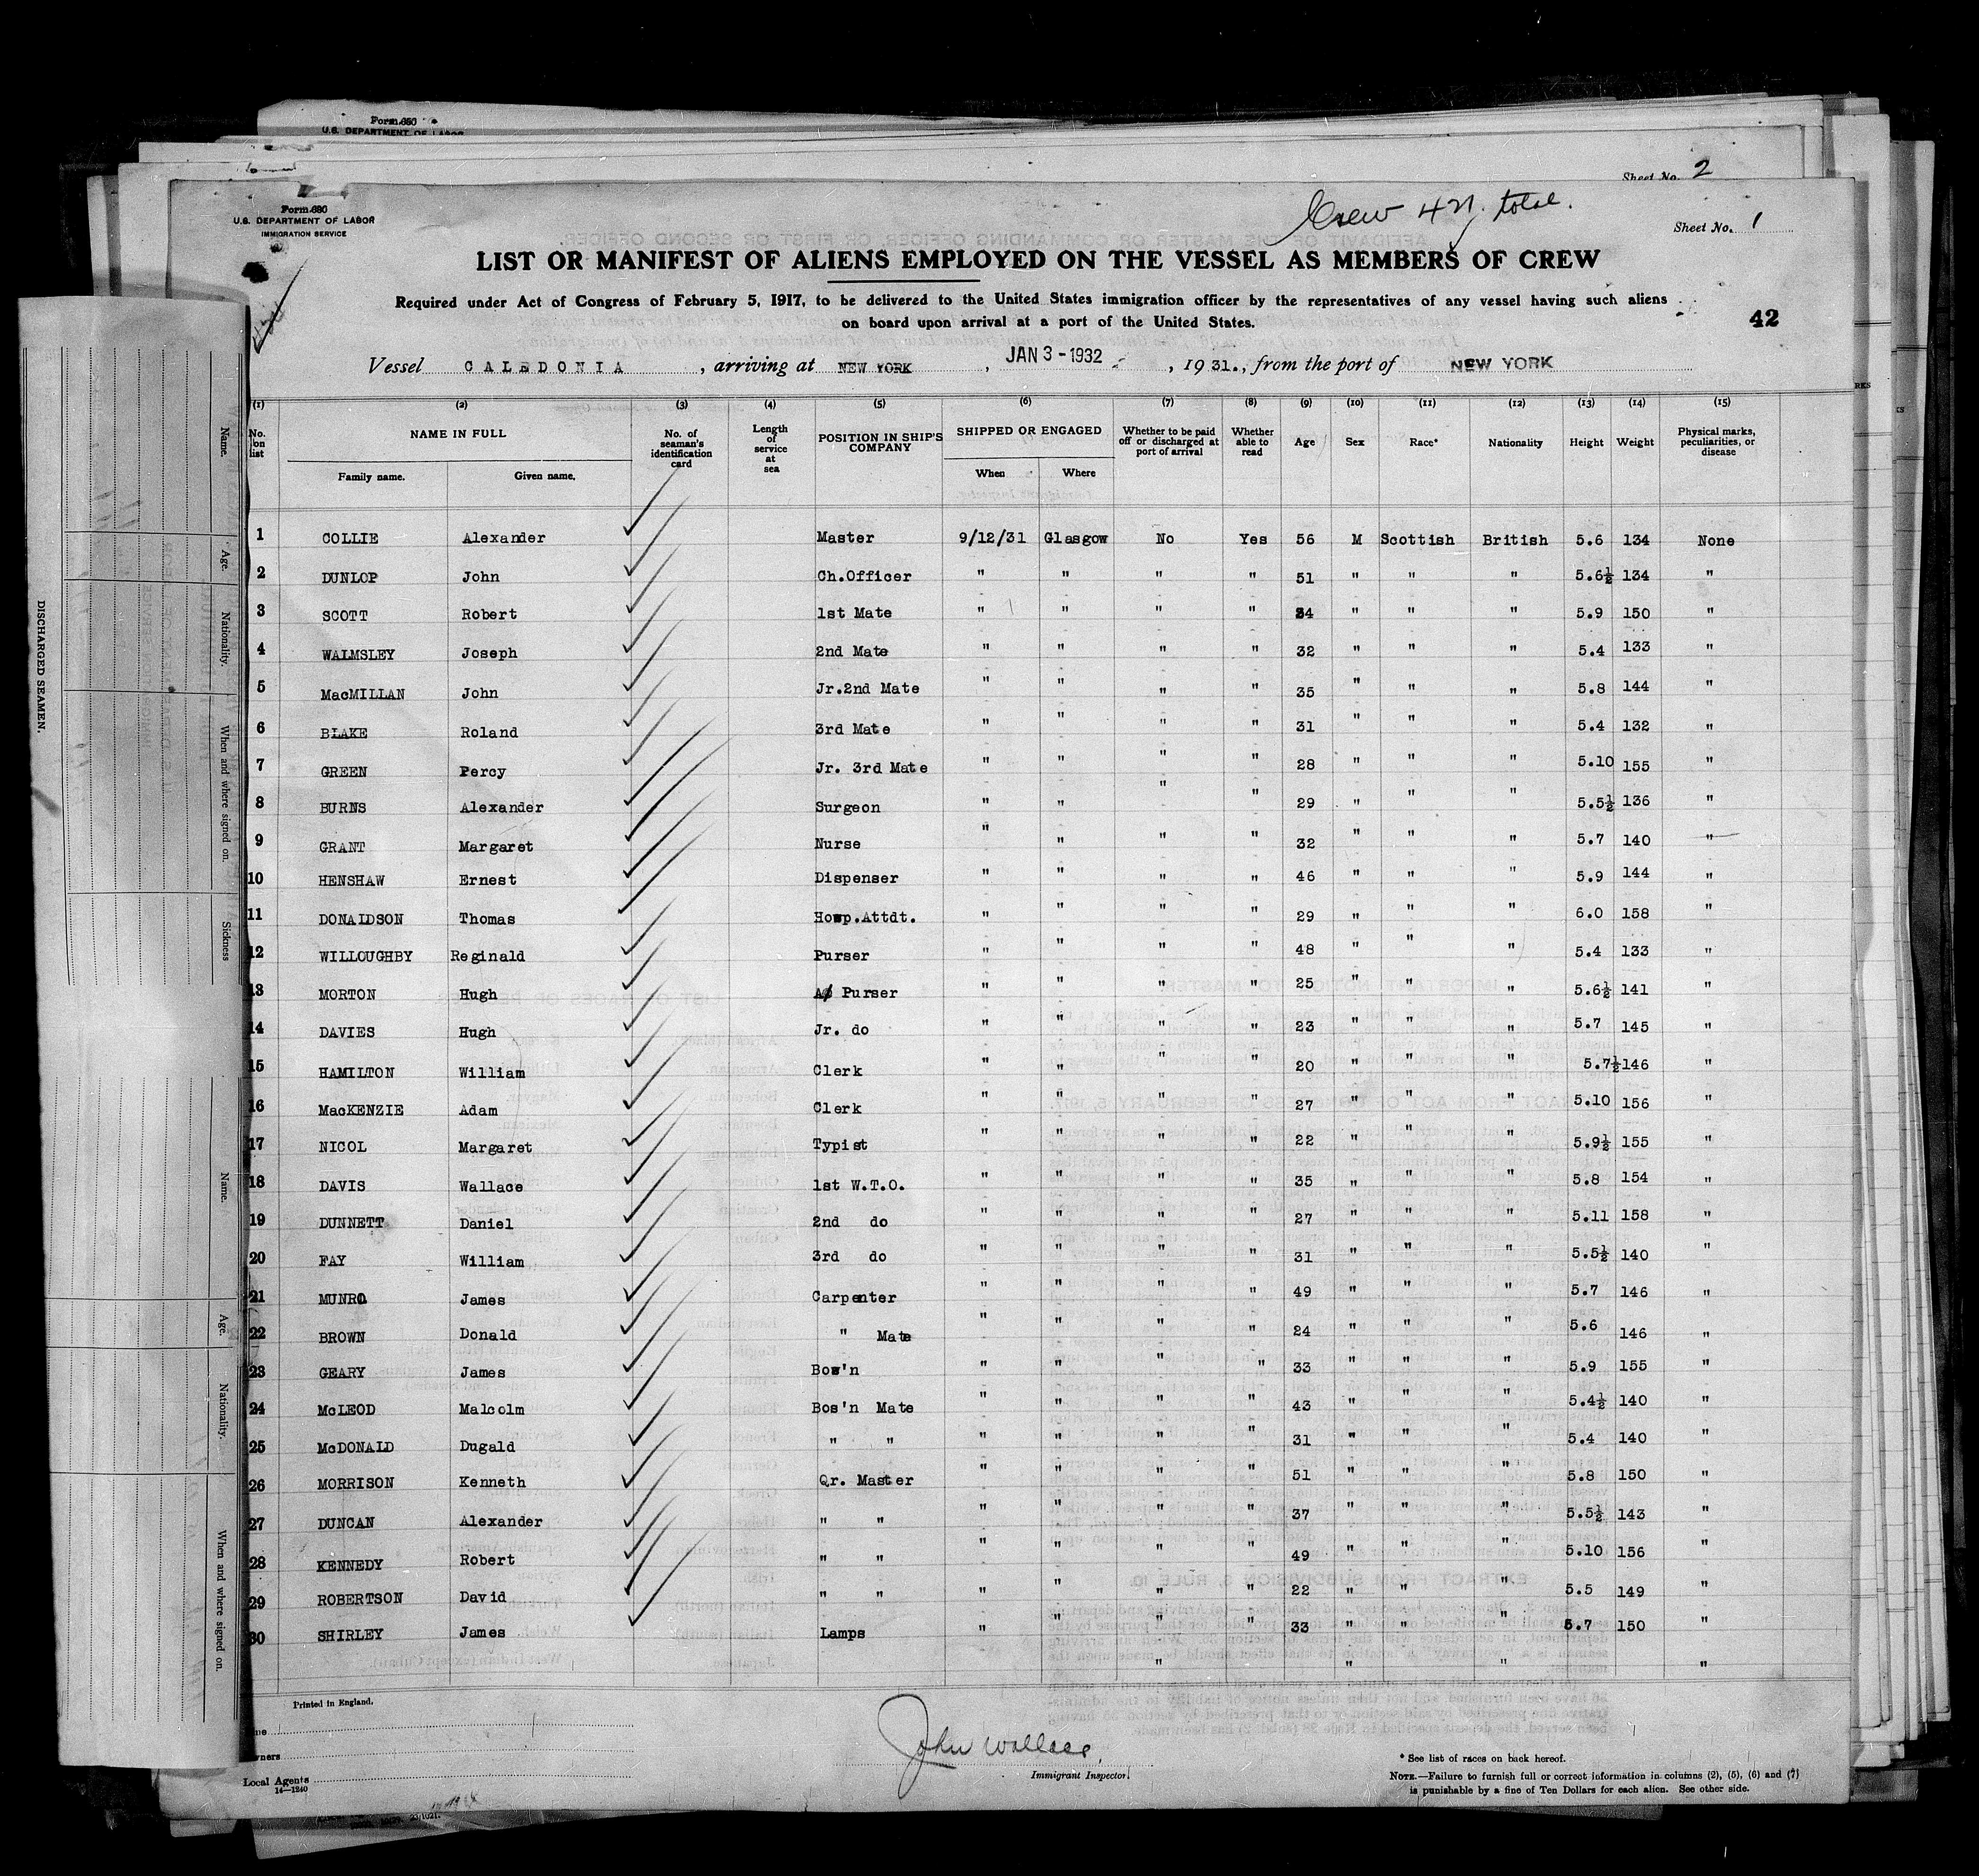 Form 680
U.S. DEPARTMENT OF LABOR
Sheet No. 2
Form 680
U.S. DEPARTMENT OF LABOR
IMMIGRATION SERVICE
Crew 421 total.
Sheet No. 1
LIST OR MANIFEST OF ALIENS EMPLOYED ON THE VESSEL AS MEMBERS OF CREW
Required under Act of Congress of February 5, 1917, to be delivered to the United States immigration officer by the representatives of any vessel having such aliens
on board upon arrival at a port of the United States.
42
Vessel CALEDONIA, arriving at NEW YORK, JAN 3 - 1932, 1931., from the port of NEW YORK
(1) (2) (3) (4) (5) (6) (7) (8) (9) (10) (11) (12) (13) (14) (15)
No. on list NAME IN FULL Family name. Given name. No. of seaman's identification card Length of service at sea POSITION IN SHIP'S COMPANY SHIPPED OR ENGAGED When Where Whether to be paid off or discharged at port of arrival Whether able to read Age Sex Race* Nationality Height Weight Physical marks, peculiarities, or disease
1 COLLIE Alexander Master 9/12/31 Glasgow No Yes 56 M Scottish British 5.6 134 None
2 DUNLOP John Ch.Officer " " " " 51 " " " 5.6½ 134 "
3 SCOTT Robert 1st Mate " " " " 34 " " " 5.9 150 "
4 WALMSLEY Joseph 2nd Mate " " " " 32 " " " 5.4 133 "
5 MacMILLAN John Jr.2nd Mate " " " " 35 " " " 5.8 144 "
6 BLAKE Roland 3rd Mate " " " " 31 " " " 5.4 132 "
7 GREEN Percy Jr. 3rd Mate " " " " 28 " " " 5.10 155 "
8 BURNS Alexander Surgeon " " " " 29 " " " 5.5½ 136 "
9 GRANT Margaret Nurse " " " " 32 " " " 5.7 140 "
10 HENSHAW Ernest Dispenser " " " " 46 " " " 5.9 144 "
11 DONALDSON Thomas Hosp.Attdt. " " " " 29 " " " 6.0 158 "
12 WILLOUGHBY Reginald Purser " " " " 48 " " " 5.4 133 "
13 MORTON Hugh A/ Purser " " " " 25 " " " 5.6½ 141 "
14 DAVIES Hugh Jr. do " " " " 23 " " " 5.7 145 "
15 HAMILTON William Clerk " " " " 20 " " " 5.7½ 146 "
16 MacKENZIE Adam Clerk " " " " 27 " " " 5.10 156 "
17 NICOL Margaret Typist " " " " 22 " " " 5.9½ 155 "
18 DAVIS Wallace 1st W.T.O. " " " " 35 " " " 5.8 154 "
19 DUNNETT Daniel 2nd do " " " " 27 " " " 5.11 158 "
20 FAY William 3rd do " " " " 31 " " " 5.5½ 140 "
21 MUNRO James Carpenter " " " " 49 " " " 5.7 146 "
22 BROWN Donald " Mate " " " " 24 " " " 5.6 146 "
23 GEARY James Bos'n " " " " 33 " " " 5.9 155 "
24 McLEOD Malcolm Bos'n Mate " " " " 43 " " " 5.4½ 140 "
25 McDONALD Dugald " " " " " " 31 " " " 5.4 140 "
26 MORRISON Kenneth Qr. Master " " " " 51 " " " 5.8 150 "
27 DUNCAN Alexander " " " " " " 37 " " " 5.5½ 143 "
28 KENNEDY Robert " " " " " " 49 " " " 5.10 156 "
29 ROBERTSON David " " " " " " 22 " " " 5.5 149 "
30 SHIRLEY James Lamps " " " " 33 " " " 5.7 150 "
" " " "
Printed in England.
Local Agents
14—1240
John Wallace.
Immigrant Inspector.
* See list of races on back hereof.
NOTE.—Failure to furnish full or correct information in columns (2), (5), (6) and (7)
is punishable by a fine of Ten Dollars for each alien. See other side.
DISCHARGED SEAMEN.
Name. Age. Nationality. When and where signed on. Sickness
Name. Age. Nationality. When and where signed on.